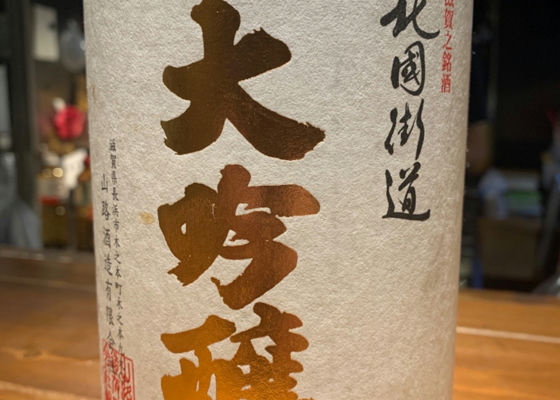 滋賀之銘酒
北國街道
大吟醸
滋賀県長浜市木之本町木之本
山路酒造有限会